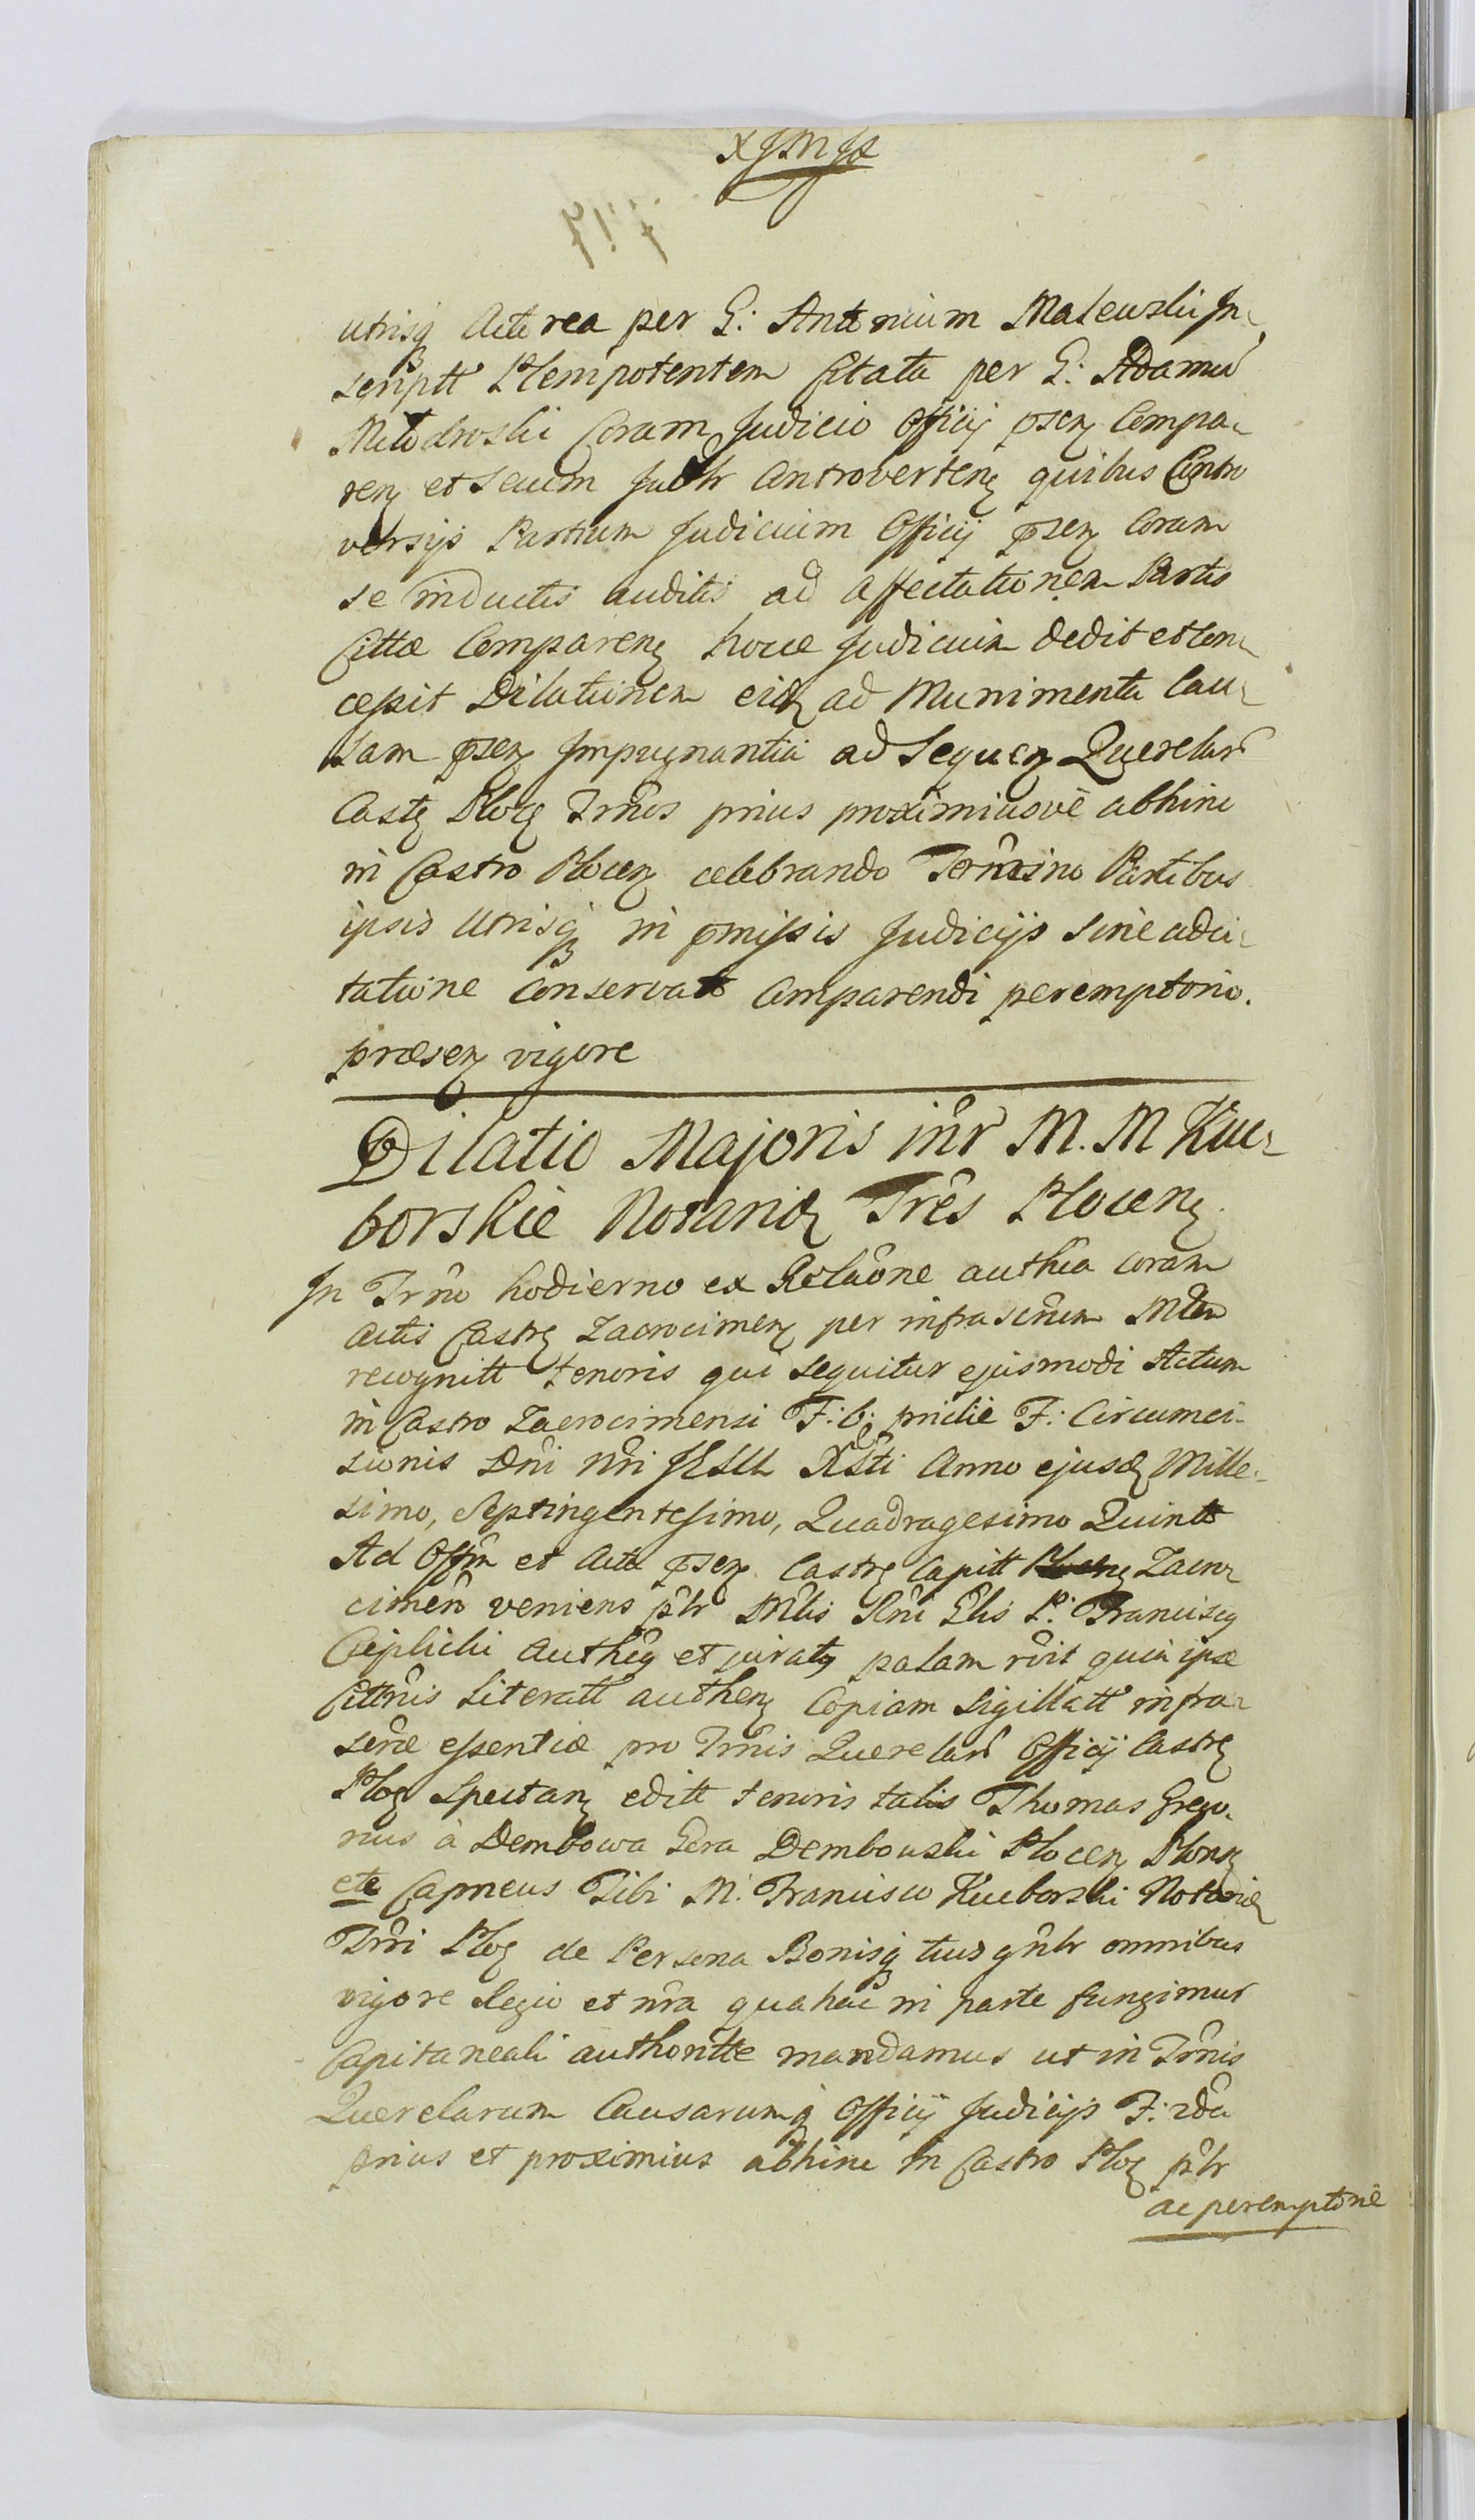 utrisq Acto rea per G: Antonium Maleuski In
scriptt Plenipotentem Citata per G: Adamu
Coram Judicio Officij psen Compa
ren et secum Judlr Controverten quibus Contro
versijs Partium Judicium Officij psen Coram
se inductis auditis ad affectationem Partis
Cittae Comparen hocce Judicium dedit et con
cessit Dilationem eid ad Munimenta Cau
sam psen Impugnantia ad sequen Querelar
Castr Ploc Trnos prius proximiusve abhinc
in Castro Plocen celebrando Termino Partibus
ipsis Utrisq in pmissis Judicijs sine adci
tatione conservato Comparendi peremptorio.
praesen vigore
Dilatio Majoris intr M. M Kuc
borskie Notarid Tres Plocen
In Trno hodierno ex Relaone authca coram
actis Castr Zacrocimen per infrascrum
recognitt tenoris qui sequitur ejusmodi Actum
in Castro Zacrocimensi F: 6: pridie F: Circumci
sionis Dni nri JESU Xsti Anno ejusd Mille
simo, Septingentesimo, Quadragesimo Quinto
Ad Offm et Acta psen Castr Capitt Zacro
cimen veniens plr Mlis Rni Glis P: Francisc
authen et jurat palam roit quia ipse
Cittnis Literatt authen Copiam Sigillatt infra
scrae essentiae pro Trnis Querelar Officij Castr
Ploc Spectan editt tenoris talis Thomas Grego
rius à Dembowa Gora Dembouski Plocen Plons
etc Capneus Tibi M. Francisco Kucborski Notarid
Trri Ploc de Persona Bonisq tuis gnlr omnibus
vigore Regio et nra qua hac in parte fungimur
Capitaneali authoritte mandamus ut in Trnis
Querelarum Causarumq Officij Judicijs F: 2da
prius et proximius abhinc in Castro Ploc plr
ac peremptorie